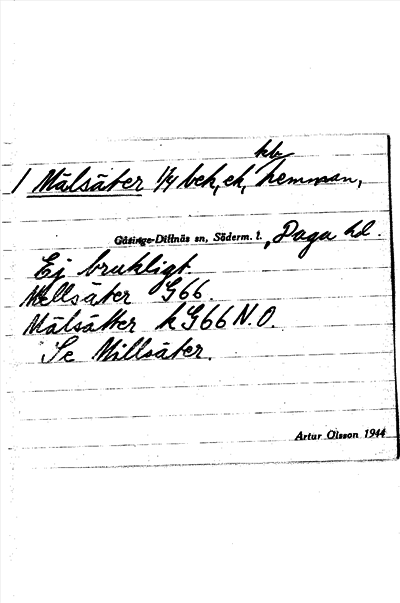 kb
1 Målsäter 1/4 beh, eh, hemman,
Gåsinge-Dillnäs sn, Söderm. l., Daga hd.
Ej brukligt.
Mellsäter G66.
Målsätter k G66 N.O.
Se Millsäter.
Artur Olsson 1944